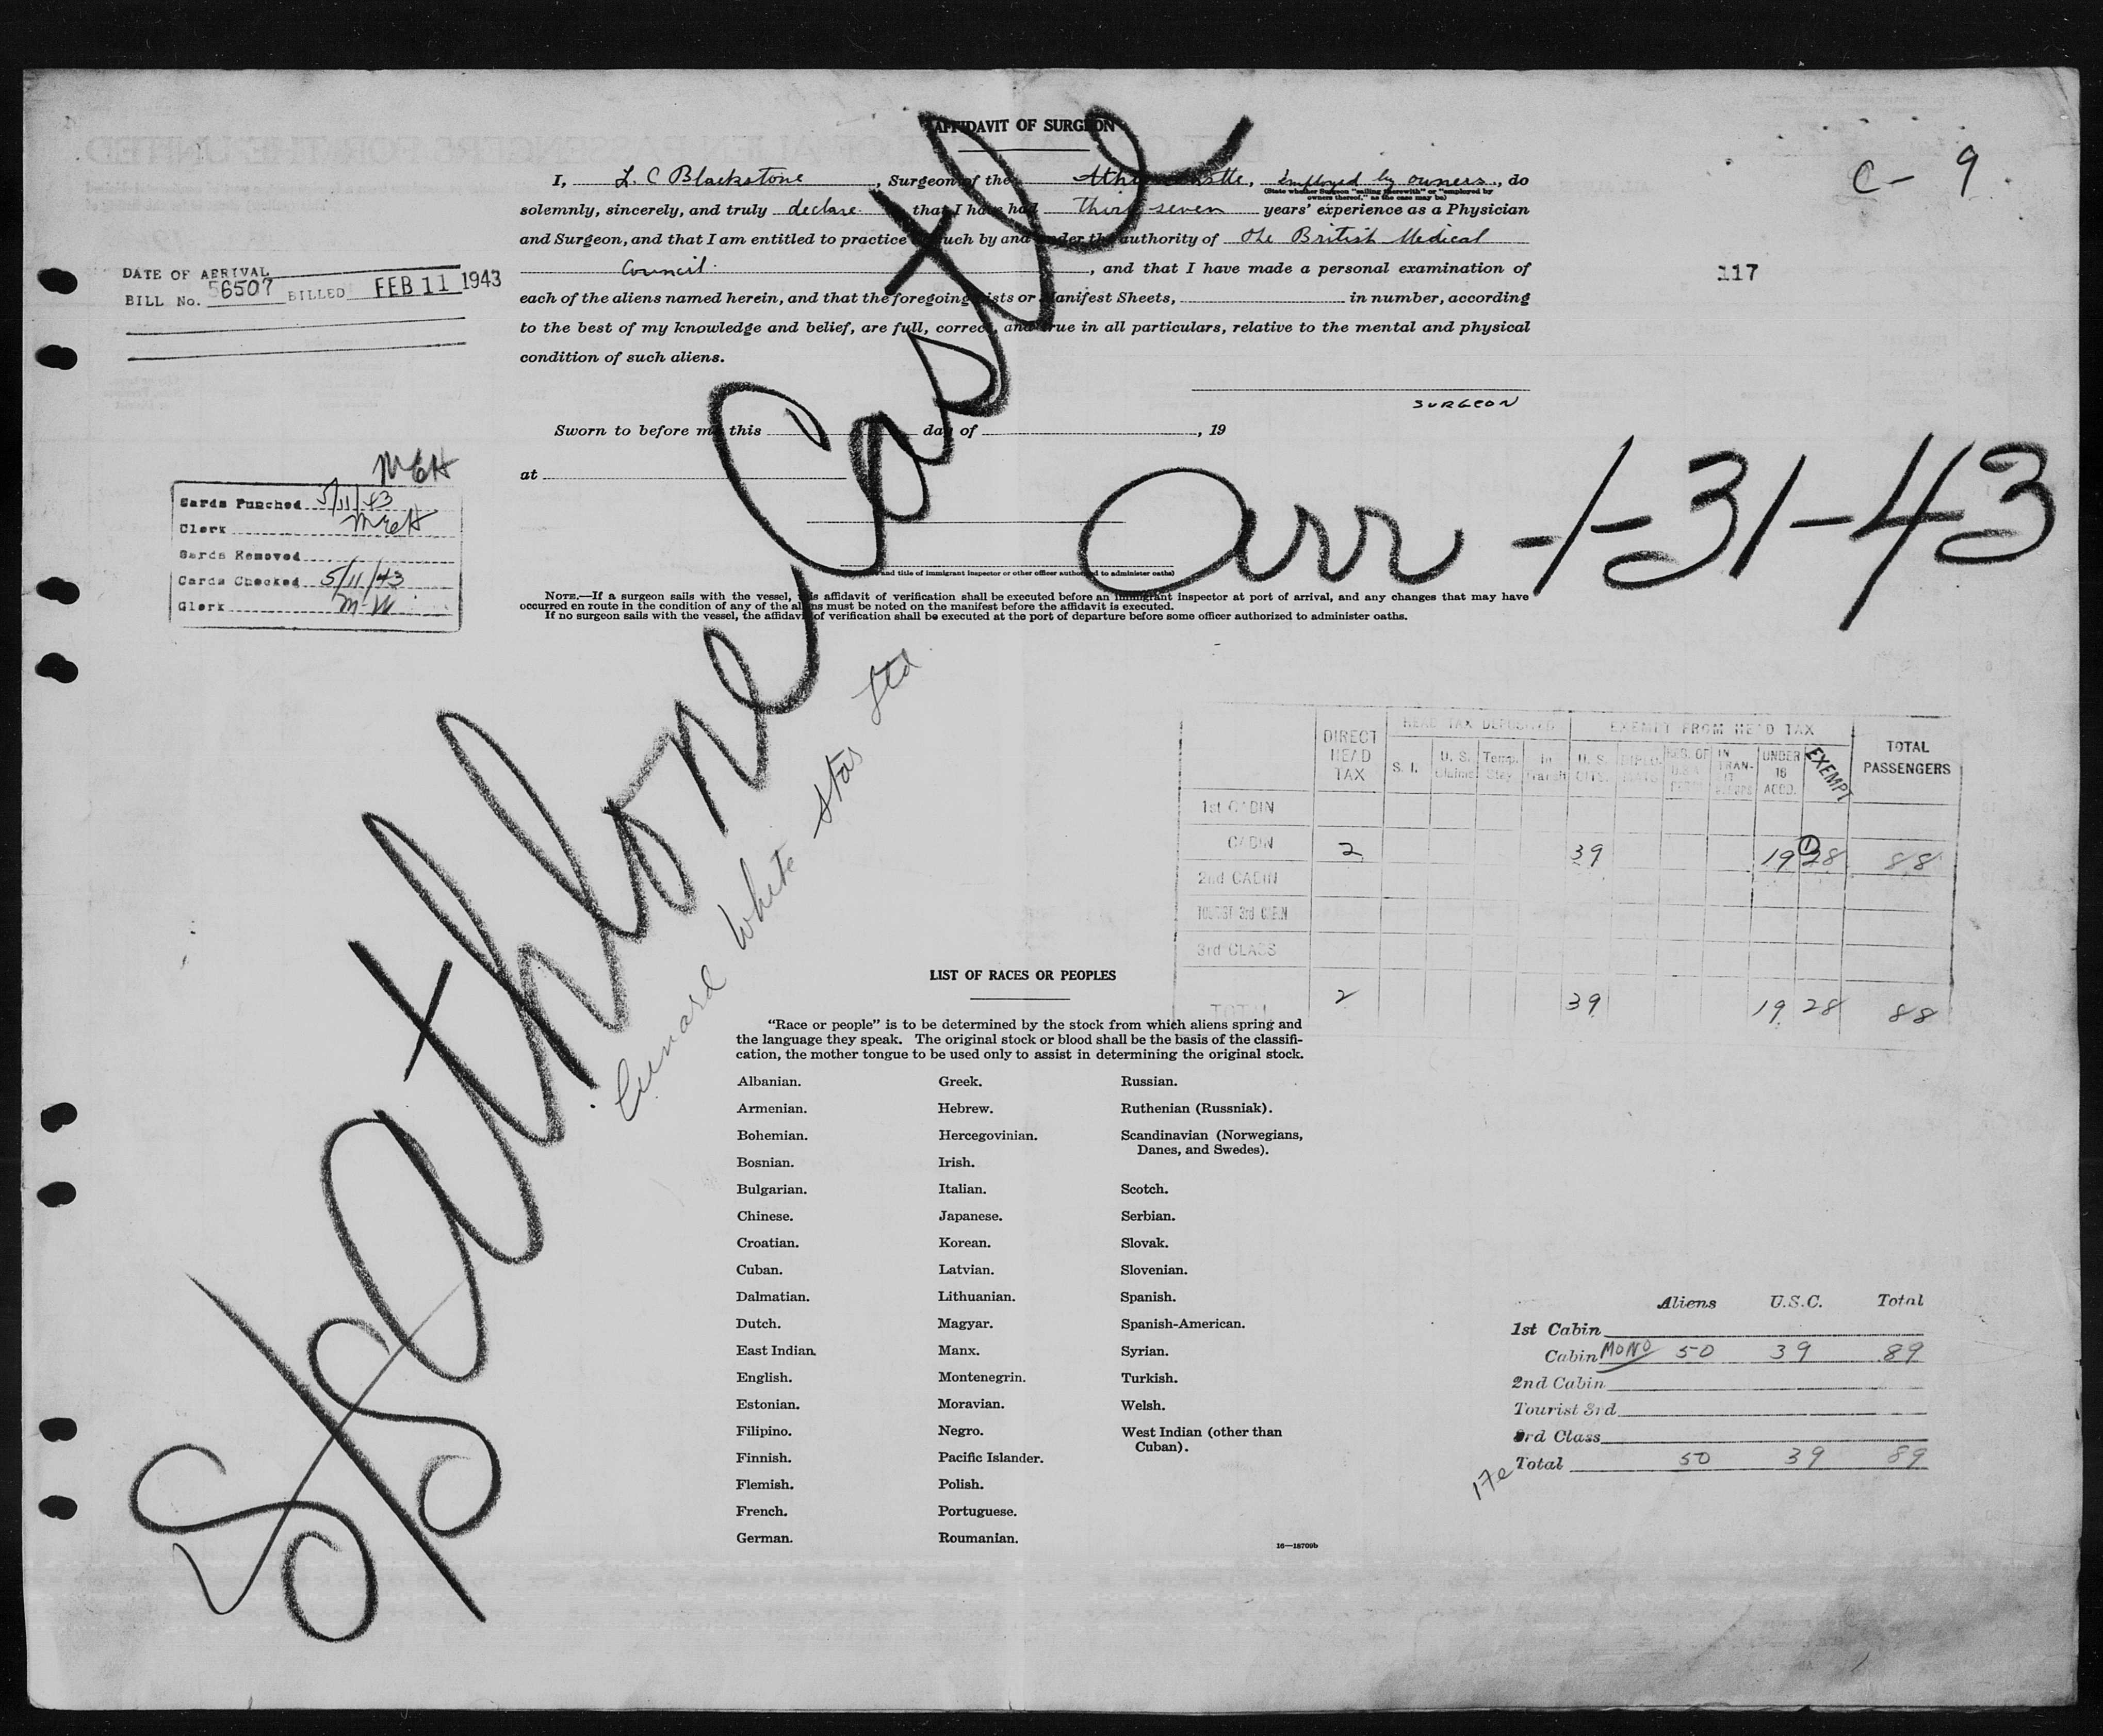 AFFIDAVIT OF SURGEON
I, L. C Blackstone, Surgeon of the Athlone Castle, Employed by owners, do
(State whether Surgeon "sailing therewith" or "employed by
owners thereof," as the case may be)
solemnly, sincerely, and truly declare that I have had thirty seven years' experience as a Physician
and Surgeon, and that I am entitled to practice as such by and under the authority of The British Medical
Council, and that I have made a personal examination of
each of the aliens named herein, and that the foregoing Lists or Manifest Sheets, in number, according
to the best of my knowledge and belief, are full, correct, and true in all particulars, relative to the mental and physical
condition of such aliens.
SURGEON
Sworn to before me this day of , 19
at
and title of immigrant inspector or other officer authorized to administer oaths)
NOTE.—If a surgeon sails with the vessel, this affidavit of verification shall be executed before an immigrant inspector at port of arrival, and any changes that may have
occurred en route in the condition of any of the aliens must be noted on the manifest before the affidavit is executed.
If no surgeon sails with the vessel, the affidavit of verification shall be executed at the port of departure before some officer authorized to administer oaths.
C- 9
117
DATE OF ARRIVAL
BILL No. 56507 BILLED FEB 11 1943
MEH
Cards Punched 5/11/43
Clerk MEH
Cards Removed
Cards Checked 5/11/43
Clerk M-W
S/S Athlone Castle
arr -1-31-43
Cunard White Star Ltd
DIRECT HEAD TAX
HEAD TAX DEPOSITED
S. I.
U. S. Claims
Temp. Stay
In Transit
EXEMPT FROM HEAD TAX
U. S. CITS.
DIPLO-MATS
IN TRAN-IT
UNDER 16 ACCD.
EXEMPT
TOTAL PASSENGERS
1st CABIN
CABIN 2 39 19 28 1 88
2nd CABIN
TOURIST 3rd CABIN
3rd CLASS
TOTAL 2 39 19 28 88
LIST OF RACES OR PEOPLES
"Race or people" is to be determined by the stock from which aliens spring and
the language they speak. The original stock or blood shall be the basis of the classifi-
cation, the mother tongue to be used only to assist in determining the original stock.
Albanian.
Armenian.
Bohemian.
Bosnian.
Bulgarian.
Chinese.
Croatian.
Cuban.
Dalmatian.
Dutch.
East Indian.
English.
Estonian.
Filipino.
Finnish.
Flemish.
French.
German.
Greek.
Hebrew.
Hercegovinian.
Irish.
Italian.
Japanese.
Korean.
Latvian.
Lithuanian.
Magyar.
Manx.
Montenegrin.
Moravian.
Negro.
Pacific Islander.
Polish.
Portuguese.
Roumanian.
Russian.
Ruthenian (Russniak).
Scandinavian (Norwegians,
Danes, and Swedes).
Scotch.
Serbian.
Slovak.
Slovenian.
Spanish.
Spanish-American.
Syrian.
Turkish.
Welsh.
West Indian (other than
Cuban).
16—18709b
Aliens U.S.C. Total
1st Cabin
Cabin MONO 50 39 89
2nd Cabin
Tourist 3rd
3rd Class
Total 50 39 89